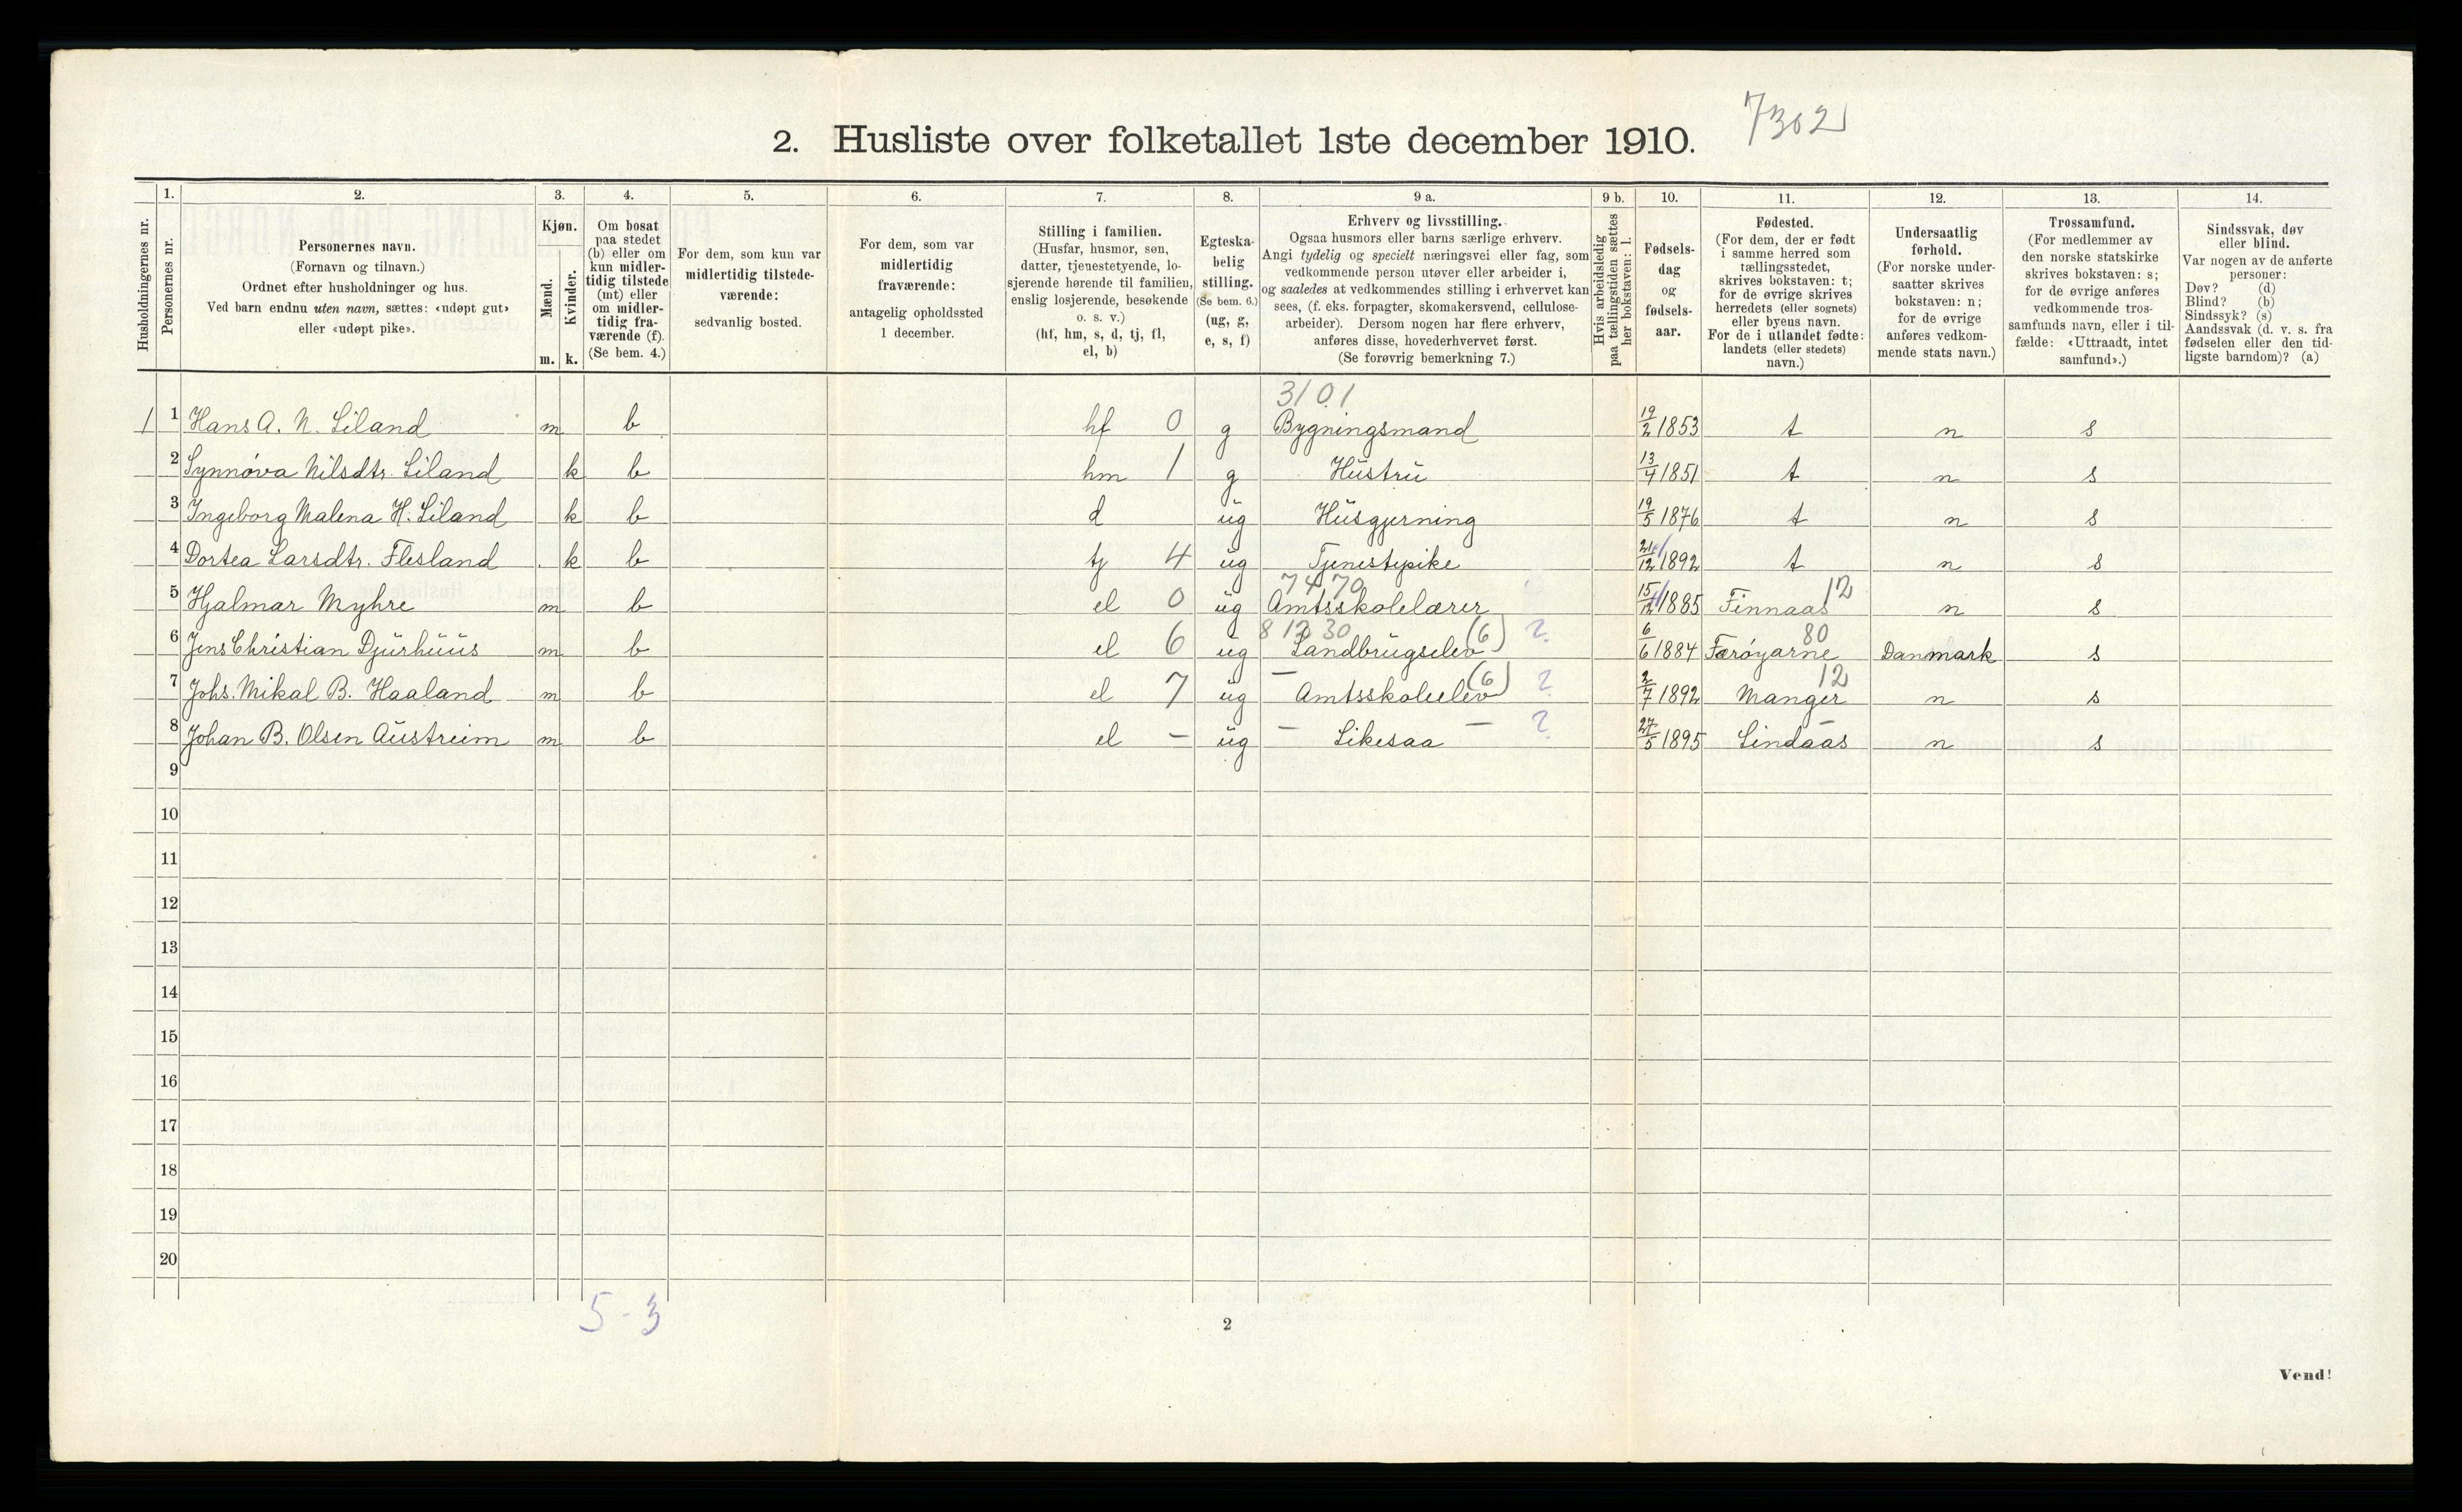 7302
2. Husliste over folketallet 1ste december 1910.
Husholdningernes nr.
1.
Personernes nr.
2.
Personernes navn.
(Fornavn og tilnavn.)
Ordnet efter husholdninger og hus.
Ved barn endnu uten navn, sættes: «udøpt gut»
eller «udøpt pike».
3.
Kjøn.
Mænd.
Kvinder.
m. k.
4.
Om bosat
paa stedet
(b) eller om
kun midler-
tidig tilstede
(mt) eller
om midler-
tidig fra-
værende (f).
(Se bem. 4.)
5.
For dem, som kun var
midlertidig tilstede-
værende:
sedvanlig bosted.
6.
For dem, som var
midlertidig
fraværende:
antagelig opholdssted
1 december.
7.
Stilling i familien.
(Husfar, husmor, søn,
datter, tjenestetyende, lo-
sjerende hørende til familien,
enslig losjerende, besøkende
o. s. v.)
(hf, hm, s, d, tj, fl,
el, b)
8.
Egteska-
belig
stilling.
(Se bem. 6.)
(ug, g,
e, s, f)
9 a.
Erhverv og livsstilling.
Ogsaa husmors eller barns særlige erhverv.
Angi tydelig og specielt næringsvei eller fag, som
vedkommende person utøver eller arbeider i,
og saaledes at vedkommendes stilling i erhvervet kan
sees, (f. eks. forpagter, skomakersvend, cellulose-
arbeider). Dersom nogen har flere erhverv,
anføres disse, hovederhvervet først.
(Se forøvrig bemerkning 7.)
9 b.
Hvis arbeidsledig
paa tællingstiden sættes
her bokstaven: l.
10.
Fødsels-
dag
og
fødsels-
aar.
11.
Fødested.
(For dem, der er født
i samme herred som
tællingsstedet,
skrives bokstaven: t;
for de øvrige skrives
herredets (eller sognets)
eller byens navn.
For de i utlandet fødte:
landets (eller stedets)
navn.)
12.
Undersaatlig
forhold.
(For norske under-
saatter skrives
bokstaven: n;
for de øvrige
anføres vedkom-
mende stats navn.)
13.
Trossamfund.
(For medlemmer av
den norske statskirke
skrives bokstaven: s;
for de øvrige anføres
vedkommende tros-
samfunds navn, eller i til-
fælde: «Uttraadt, intet
samfund».)
14.
Sindssvak, døv
eller blind.
Var nogen av de anførte
personer:
Døv? (d)
Blind? (b)
Sindssyk? (s)
Aandssvak (d. v. s. fra
fødselen eller den tid-
ligste barndom)? (a)
3101
1 1 Hans A. N. Liland m b hf 0 g Bygningsmand 19/2 1853 t n s
2 Synnøva Nilsdtr. Liland k b hm 1 g Hustru 13/4 1851 t n s
3 Ingeborg Malena H. Liland k b d ug Husgjerning 19/5 1876 t n s
4 Dortea Larsdtr. Flesland k b tj 4 ug Tjenestepike /12 1892 t n s
7470 12
5 Hjalmar Myhre m b el 0 ug Amtsskolelærer 15/12 1885 Finnaas n s
81230 (6) ? 80
6 Jens Christian Djurhuus m b el 6 ug Landbrugselev 6/6 1884 Færøyarne Danmark s
— (6) ? 12
7 Johs. Mikal B. Haaland m b el 7 ug Amtsskoleelev 2/7 1892 Manger n s
8 Johan B. Olsen Austreim m b el - ug — Likesaa — ? 27/5 1895 Lindaas n s
9
10
11
12
13
14
15
16
17
18
19
20
5-3
2
Vend!